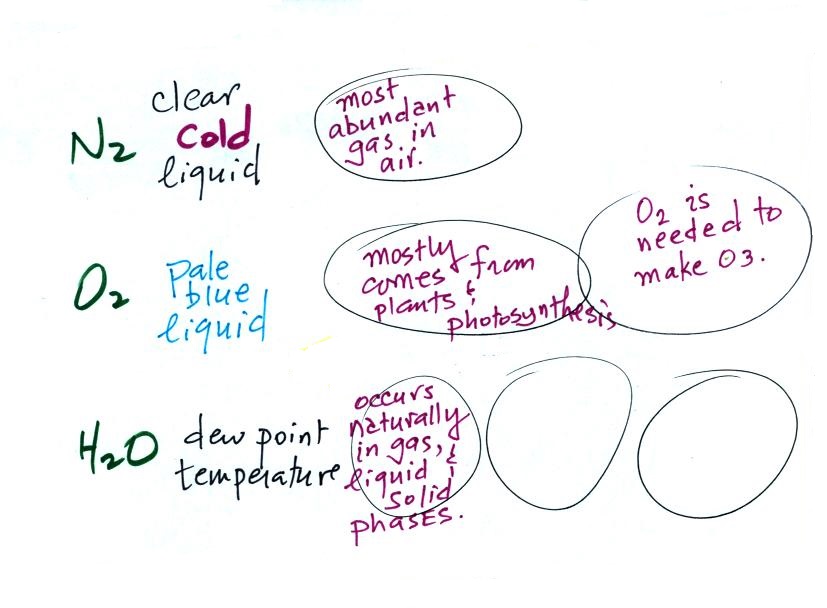 N2
clear
cold
liquid
most
abundant
gas in
air.
O2
pale
blue
liquid
mostly
comes from
plants &
photosynthesis
O2 is
needed to
make O3.
H2O
dew point
temperature
occurs
naturally
in gas,
liquid &
solid
phases.